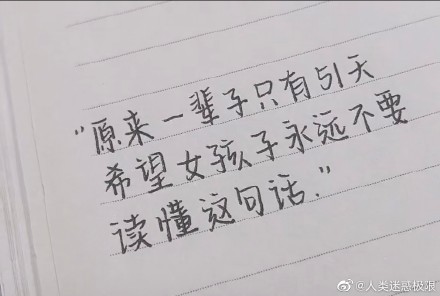 "原来一辈子只有51天
希望女孩子永远不要
读懂这句话."
@人类迷惑极限